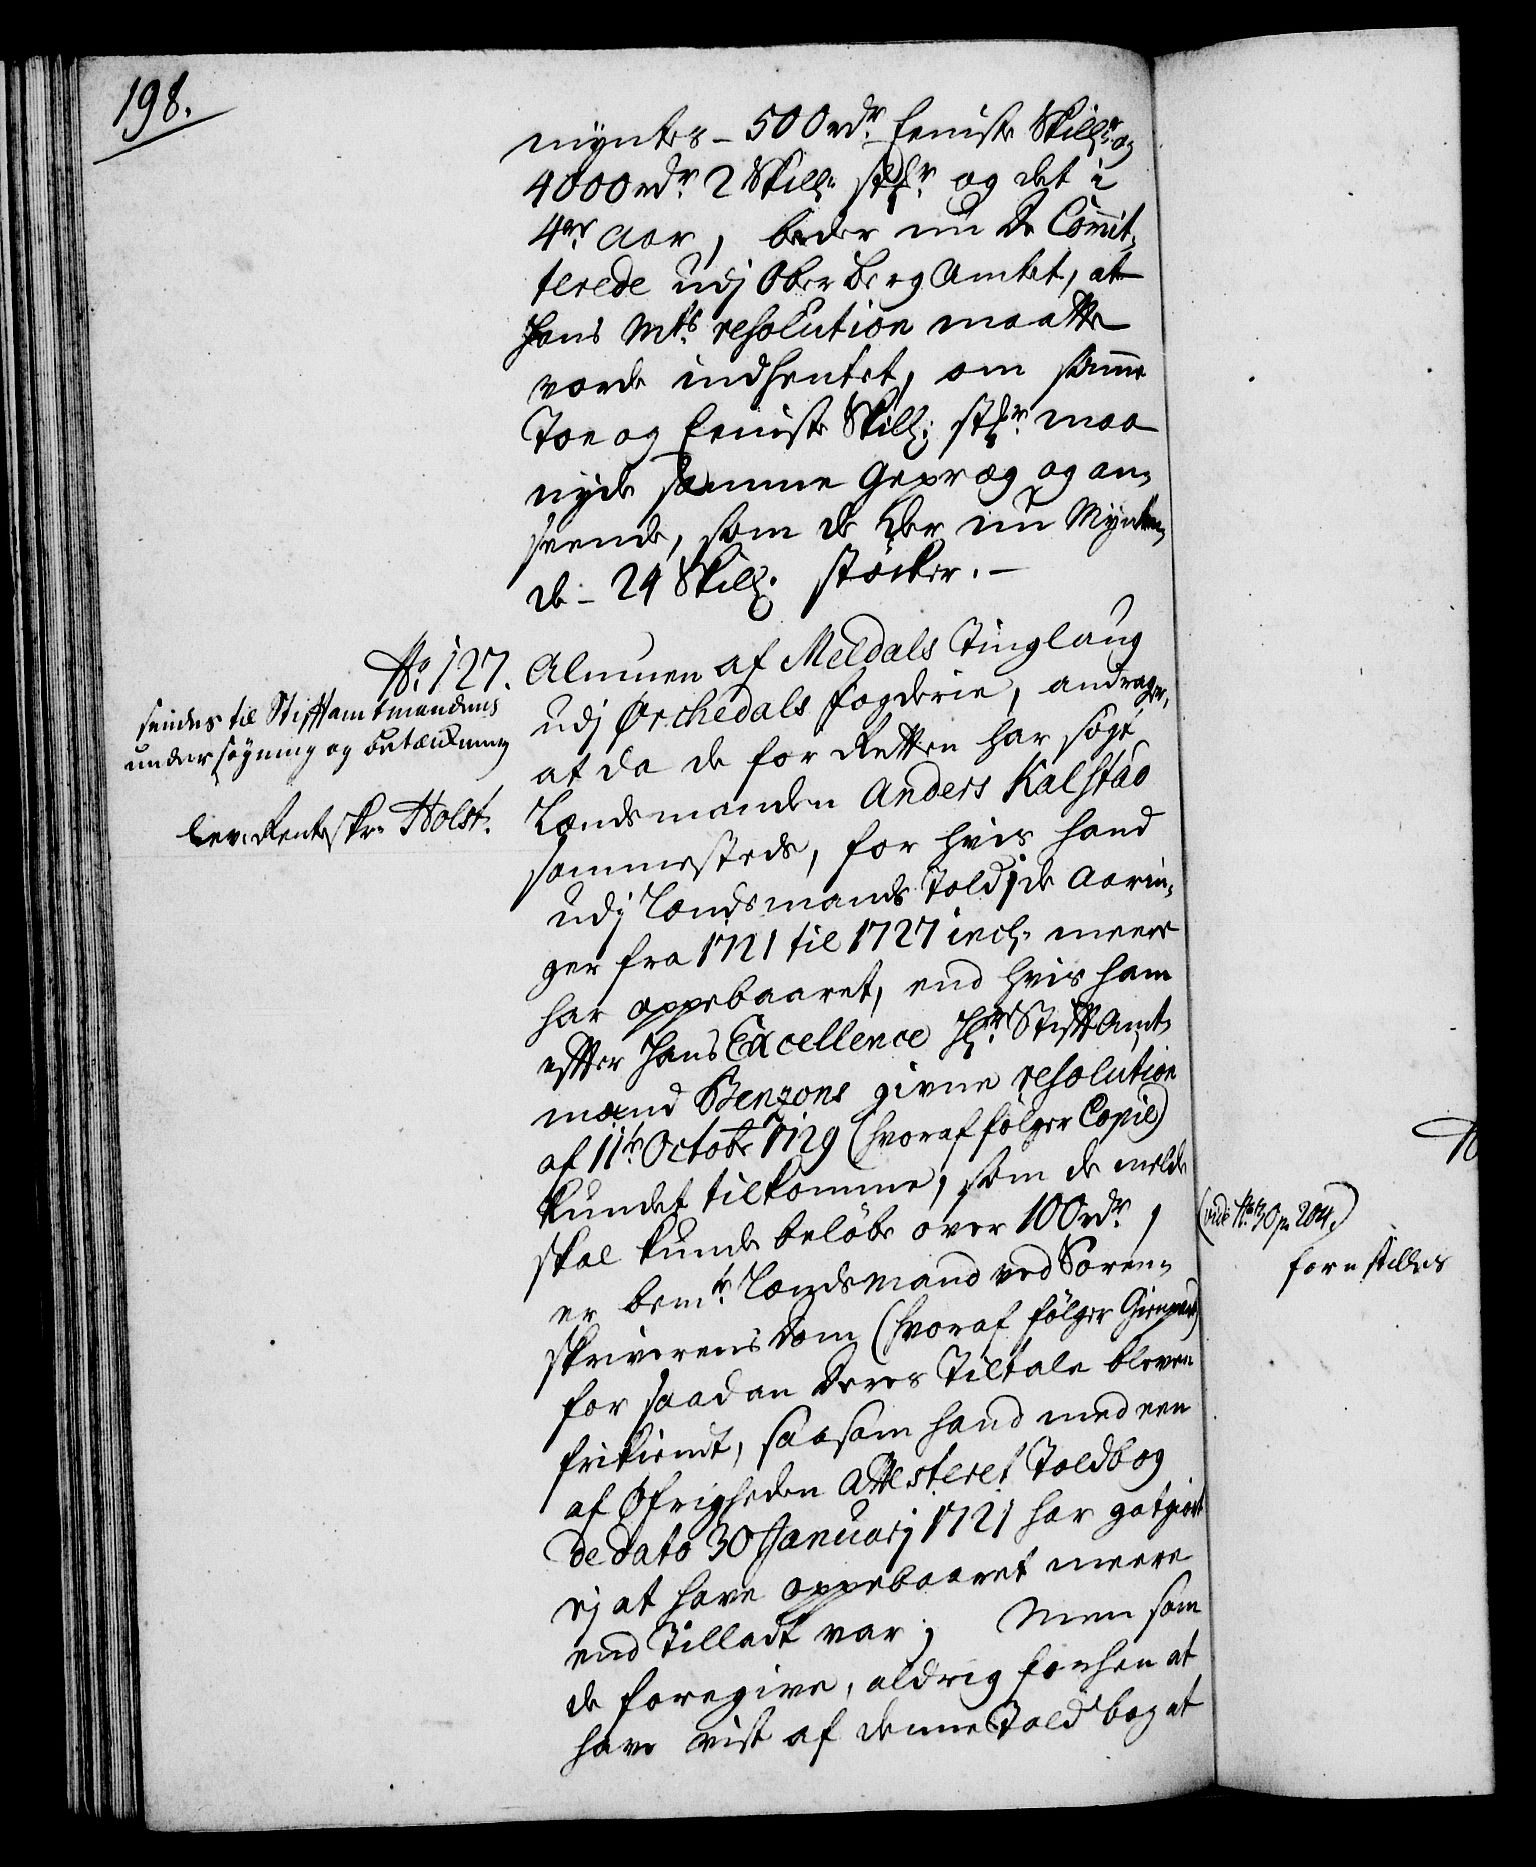 198.
myntes - 500 rdr. Eeniste Skillr. og
4000 rdr. 2 Skill. stkr. og det i
4er Aar, beder nu De Com̄it-
terede udj Ober Berg Amtet, at
Hans Mts. resolution maatte
vorde indhentet, om samme
Toe og Eeniste Skill: stkr. maa
nyde samme Gepræg og an-
seende, som de der nu Mynten-
de - 24 Skill. støcker. -
No. 127.
sendes til Stiftamtmandens
undersøgning og betænkning
lev. Renteskr. Holst.
Almuen af Meldals Tinglaug
udj Ørchedals fogderie, andrager,
at da de for Retten har søgt
Lændsmanden Anders Kalstad
sammesteds, for hvis hand
udj Lændsmands Told i de Aarin-
ger fra 1721 til 1727 incl. meere
har oppebaaret, end hvis ham
efter Hans Excellence Hr. Stift Amt-
mand Benzons givne resolution
af 11te Octobr. 1729 (hvoraf følger Copie)
kundet tilkomme, som de melde
skal kunde beløbe over 100 rdr.,
er bemte. Lændsmand ved Soren-
skriverens Dom (hvoraf følger Gienpart)
for saadan deres Tiltale bleven
frikiendt, saasom hand med een
af Øfrigheden Attesteret Toldbog
de dato 30 Januarj 1721 har godgiort
ej at have oppebaaret meere
end Tilladt var; Men som
de foregive, aldrig forhen at
have vist af denne Told bog at
(vide No. 130 p. 204.)
forestilles